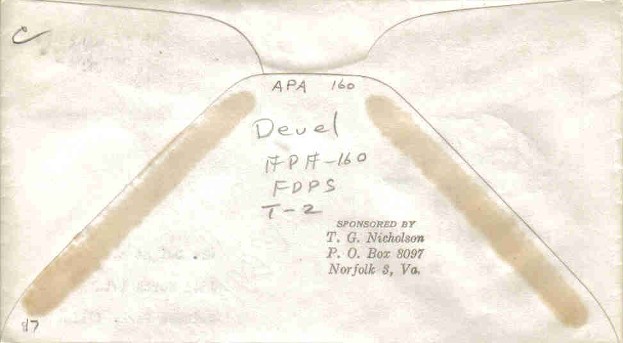 C
APA 160
Deuel
APA-160
FDPS
T-2
SPONSORED BY
T. G. Nicholson
P. O. Box 8097
Norfolk 3, Va.